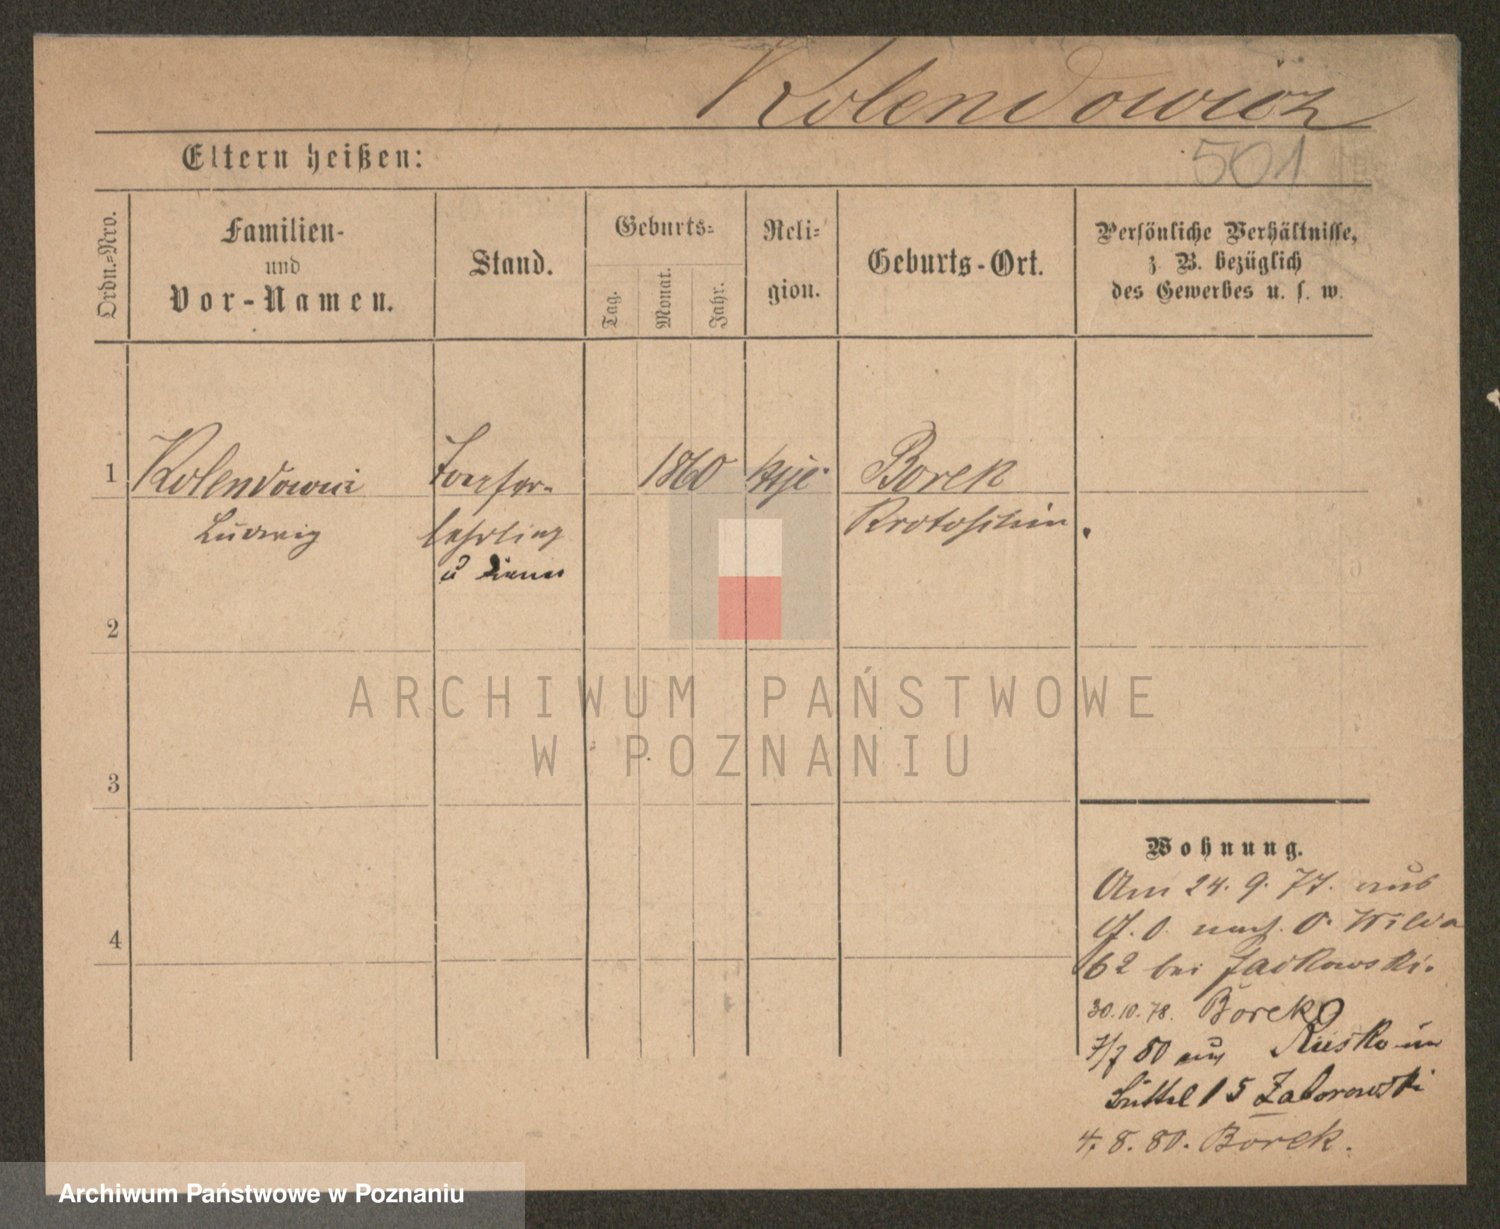 Kolendowicz
501
Eltern heißen:
Ordn.-Nro.
Familien-
und
Vor-Namen.
Stand.
Geburts-
Tag.
Monat.
Jahr.
Reli-
gion.
Geburts-Ort.
Persönliche Verhältnisse,
z. B. bezüglich
des Gewerbes u. s. w.
1
Kolendowicz
Ludwig
lehrling
u Diener
1860
Borek
Krotoschin
2
3
4
ARCHIWUM PAŃSTWOWE
W POZNANIU
Wohnung.
Am 24. 9. 77. aus
nach O. Wilda
62 bei Jackowski.
30.10.78. Borek
7/7 80 aus Rusko in
Büttel 15 Zaborowski
4. 8. 80. Borek.
Archiwum Państwowe w Poznaniu